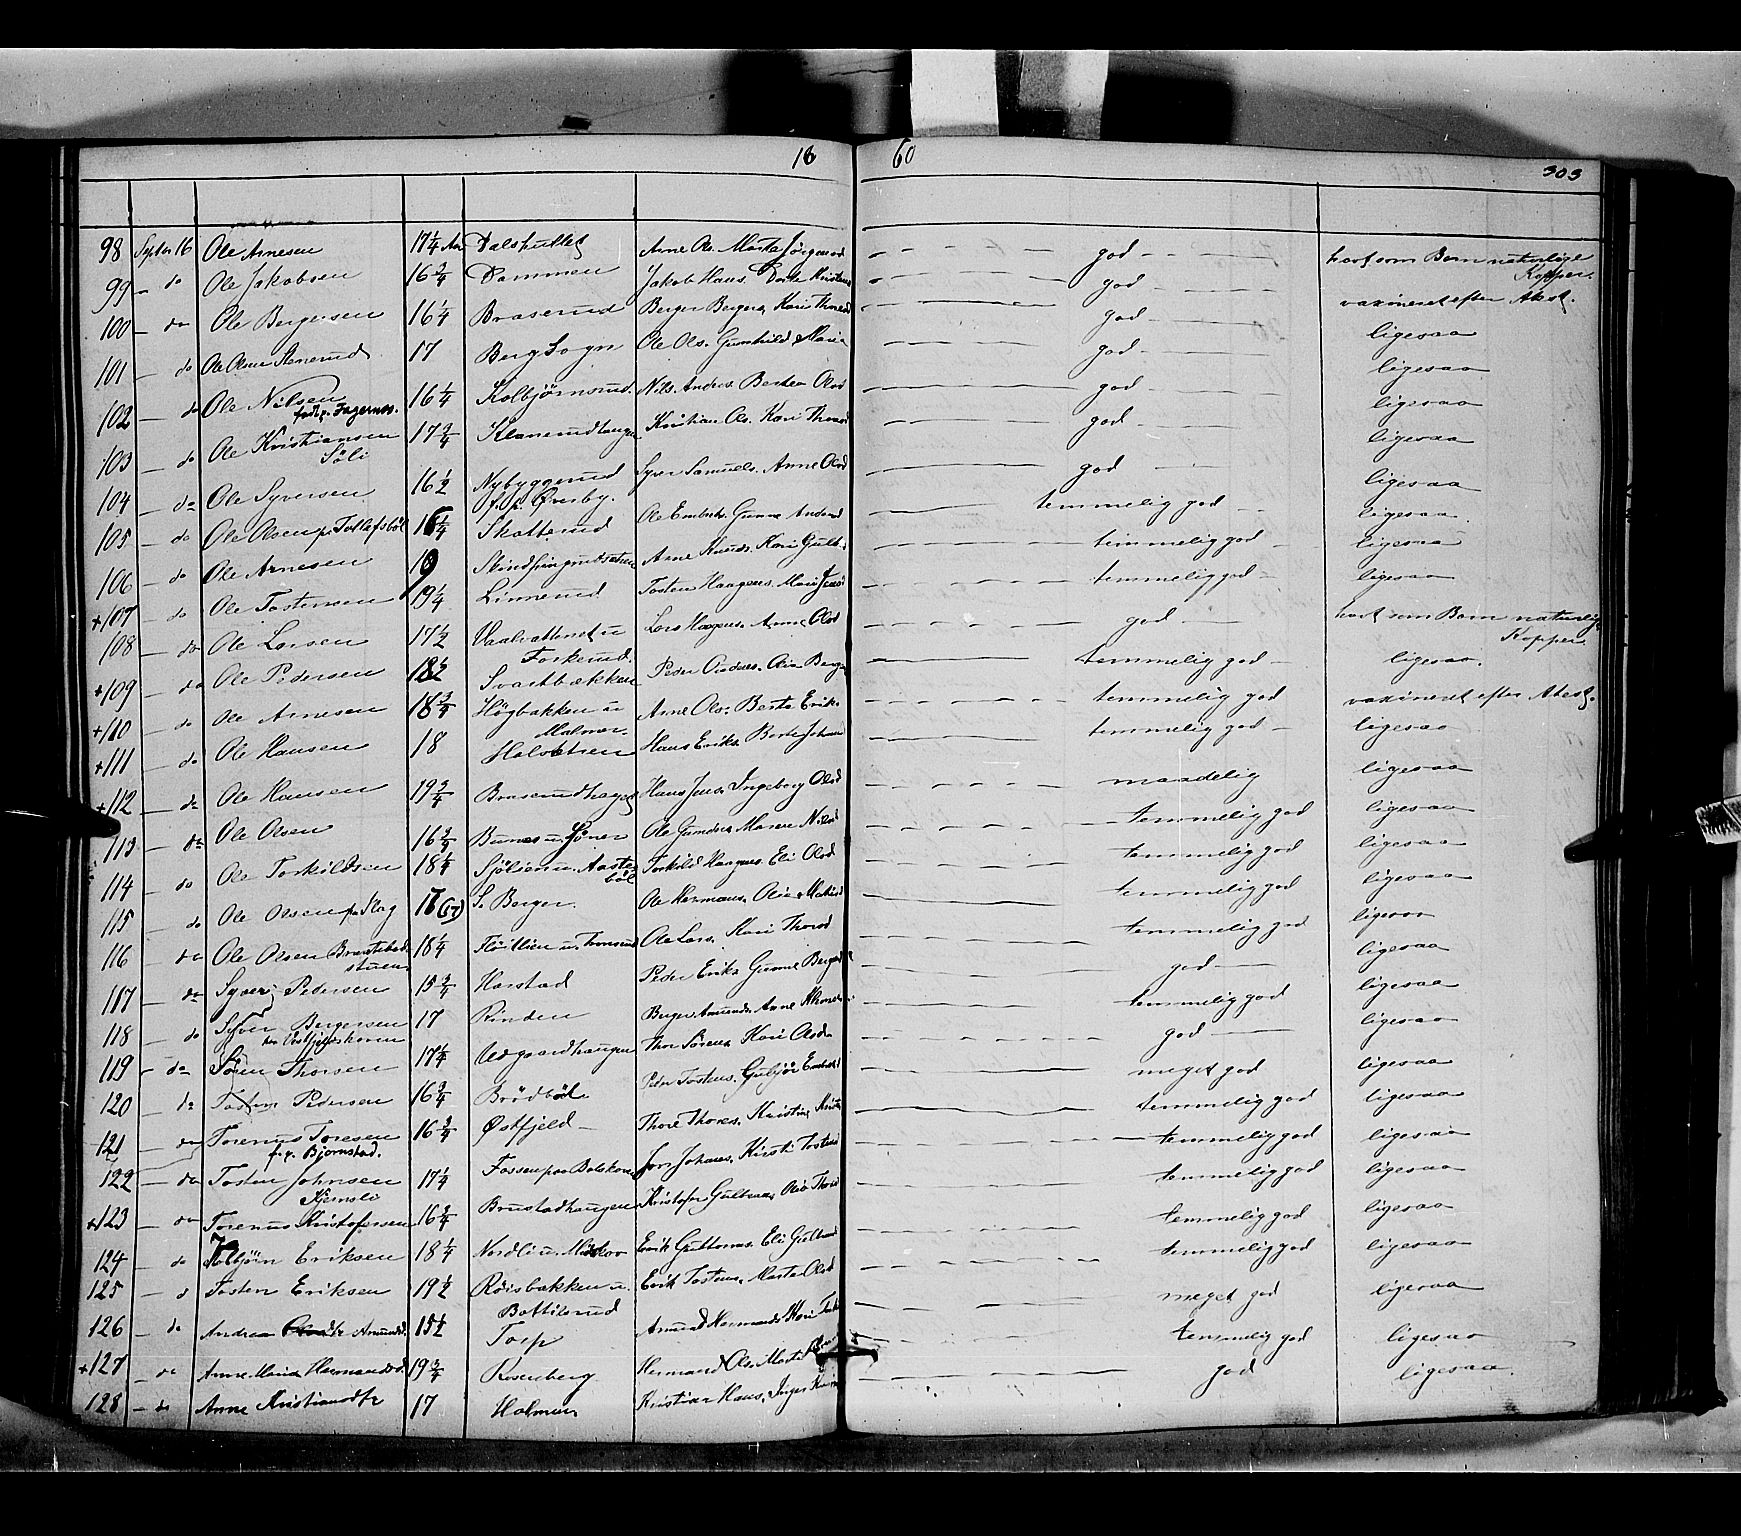 18 60
303
98 Septbr 16 Ole Arnesen 17 1/4 Aar Dalshullet Arne Ols. Marte Jörgensd god havt som Barn naturlige
Kopper.
99 - do Ole Jakobsen 16 3/4 Dammen Jakob Hans. Dorte Kristens god vaxineret efter Atest.
100 - do Ole Bergersen 16 1/4 Braserud Berger Bergers. Kari Thoresd god ligesaa
101 - do Ole Olsen Stenerud 17 Berg Sogn Ole Ols. Gunhild Maria god ligesaa
102 - do Ole Nilsen 16 1/4 Kolbjörnsrud Nils Anders. Berthea Olsd god ligesaa
født p. Fagernes.
103 - do Ole Kristiansen 17 3/4 Klanerudhaugen Kristian Ols. Kari Thoresd god ligesaa
Söli
104 - do Ole Syversen 16 1/2 Nybyggerud Syver Samuels. Anne Olsd god ligesaa
f. p. Överby.
105 - do Ole Olsen p. Tollefsböl 16 1/4 Skatterud Ole Embrets. Gunna Andersd temmelig god ligesaa
106 - do Ole Arnesen 19 Arne Knuds. Kari Gulb. temmelig god ligesaa
+107 - do Ole Tostensen 19 1/4 Linnerud Tosten Haagens. Mari temmelig god ligesaa
108 - do Ole Larsen 17 1/2 Vaalvattenet u Lars Haagens. Anne Olsd god havt som Barn naturlige
Forkerud. Kopper
+109 - do Ole Pedersen 18 1/2 Svartbækken Peder temmelig god ligesaa.
+110 - do Ole Arnesen 18 3/4 Högbakken u Arne Ols. Berte Eriks temmelig god vaxineret efter Atest.
Malmer.
+111 - do Ole Hansen 18 Halvetsen Hans Eriks. Berte Johans temmelig god ligesaa
+112 - do Ole Hansen 19 3/4 Braserudhagen Hans Jens. Ingeborg Olsd maadelig ligesaa
113 - do Ole Olsen 16 3/4 Bunes u. Ole Gunders. Maren Nilsd temmelig god ligesaa
114 - do Ole Torkildsen 18 1/4 Sjölien u. Aaste- Torkild Haagens. Eli Olsd temmelig god ligesaa
böl
115 do Ole Olsen fra Slag 17 (17) S. Berger. Ole Hermans. Olia Mathisd temmelig god ligesaa
116 - do Ole Olsen 18 1/4 Flöitlien u. Ole Lars. Kari Thorsd temmelig god ligesaa
stuen
117 - do Syver Pedersen 15 3/4 Harstad Peder Eriks. Gunnil Bergers god ligesaa
118 - do Syver Bergersen 17 Rinden Berger Amunds. Anne temmelig god ligesaa
119 - do Sören Thorsen 17 1/4 Ulvgaardhaugen Thor Sörens. Kari Olsd. god ligesaa
120 - do Tosten Pedersen 16 3/4 Brödböl Peder Tostens. Gubjör Embretsd meget god ligesaa
121 - do Torenus Toresen 16 3/4 Östfjeld Thore Thores. Kristine temmelig god ligesaa
f. p. Bjornstad.
122 - do Tosten Johnsen 17 1/4 Fossen paa Jon Johans. Kirsti Tostens temmelig god ligesaa
Kjensli
+123 - do Torenus Kristofersen 16 3/4 Brustadhaugen Kristofer Gulbrans. Olia Thorsd temmelig god ligesaa
124 - do Eriksen 18 1/4 Nordli u. Moskov Erik Guttorms. Eli Gulbrand temmelig god ligesaa
125 - d Tosten Eriksen 19 1/2 Röisbakken u. Erik Tostens. Marte Olsd temmelig god ligesaa
Bottilsrud
126 - do Andrea Amundsd. 15 1/2 Torp Amund Hermands. Kari meget god ligesaa
+127 - do Anne Maria Hermandsd. 19 3/4 Rosenberg Hermand Ols. Marte temmelig god ligesaa
128 - do Anne Kristiansdtr 17 Holmen Kristian Hans. Inger god ligesaa